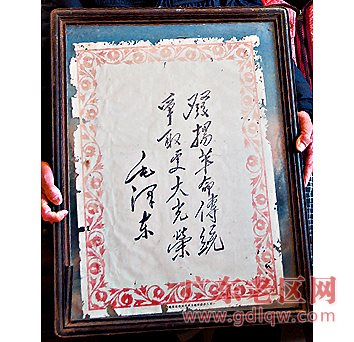 發揚革命傳統
爭取更大光榮
毛澤东
广东老区网
www.gdlqw.com